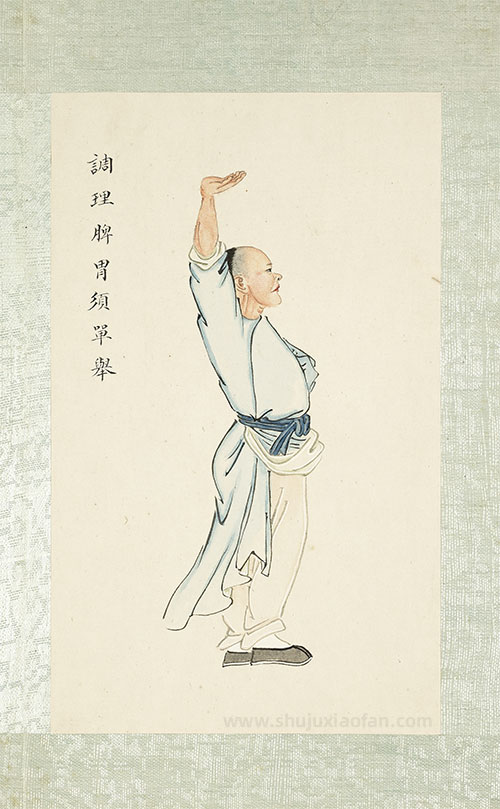 調理脾胃須單舉
www.shujuxiaofan.com